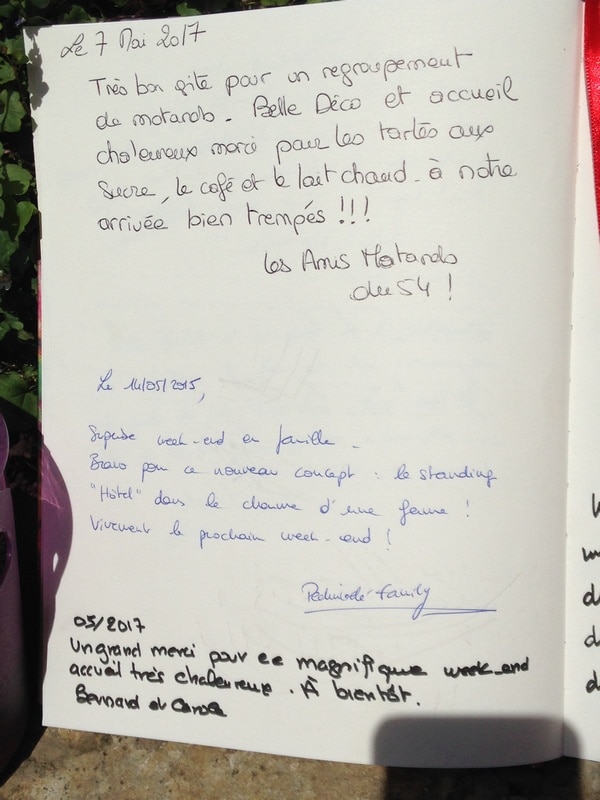 Le 7 Mai 2017
Très bon gite pour un regroupement
de motards - Belle Déco et accueil
chaleureux merci pour les tartes aux
sucre, le café et le lait chaud - à notre
arrivée bien trempés !!!
les Amis Motards
du 54 !
Le 14/05/2015,
Superbe week-end en famille -
Bravo pour ce nouveau concept : le standing
"Hôtel" dans le charme d'une ferme !
Vivement le prochain week-end !
family
05/2017
Un grand merci pour ce magnifique week-end
accueil très chaleureux . À bientôt.
Bernard et Carole